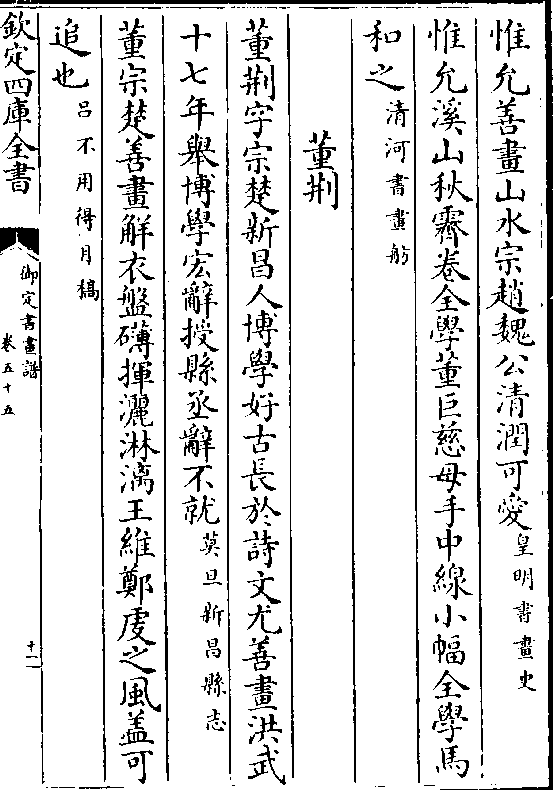 惟允善畫山水宗趙魏公清潤可愛皇明書畫史
惟允溪山秋霽卷全學董巨慈母手中線小幅全學馬
和之清河書畫舫
董荆
董荆字宗楚新昌人博學好古長於詩文尤善畫洪武
十七年舉博學宏辭授縣丞辭不就莫旦新昌縣志
董宗楚善畫解衣盤礴揮灑淋漓王維鄭䖍之風葢可
追也呂不用得月稿
欽定四庫全書
御定書畫譜
卷五十五
十一